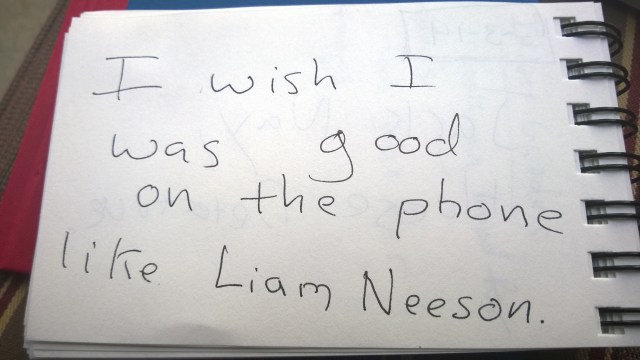 I wish I
was good
on the phone
like Liam Neeson.